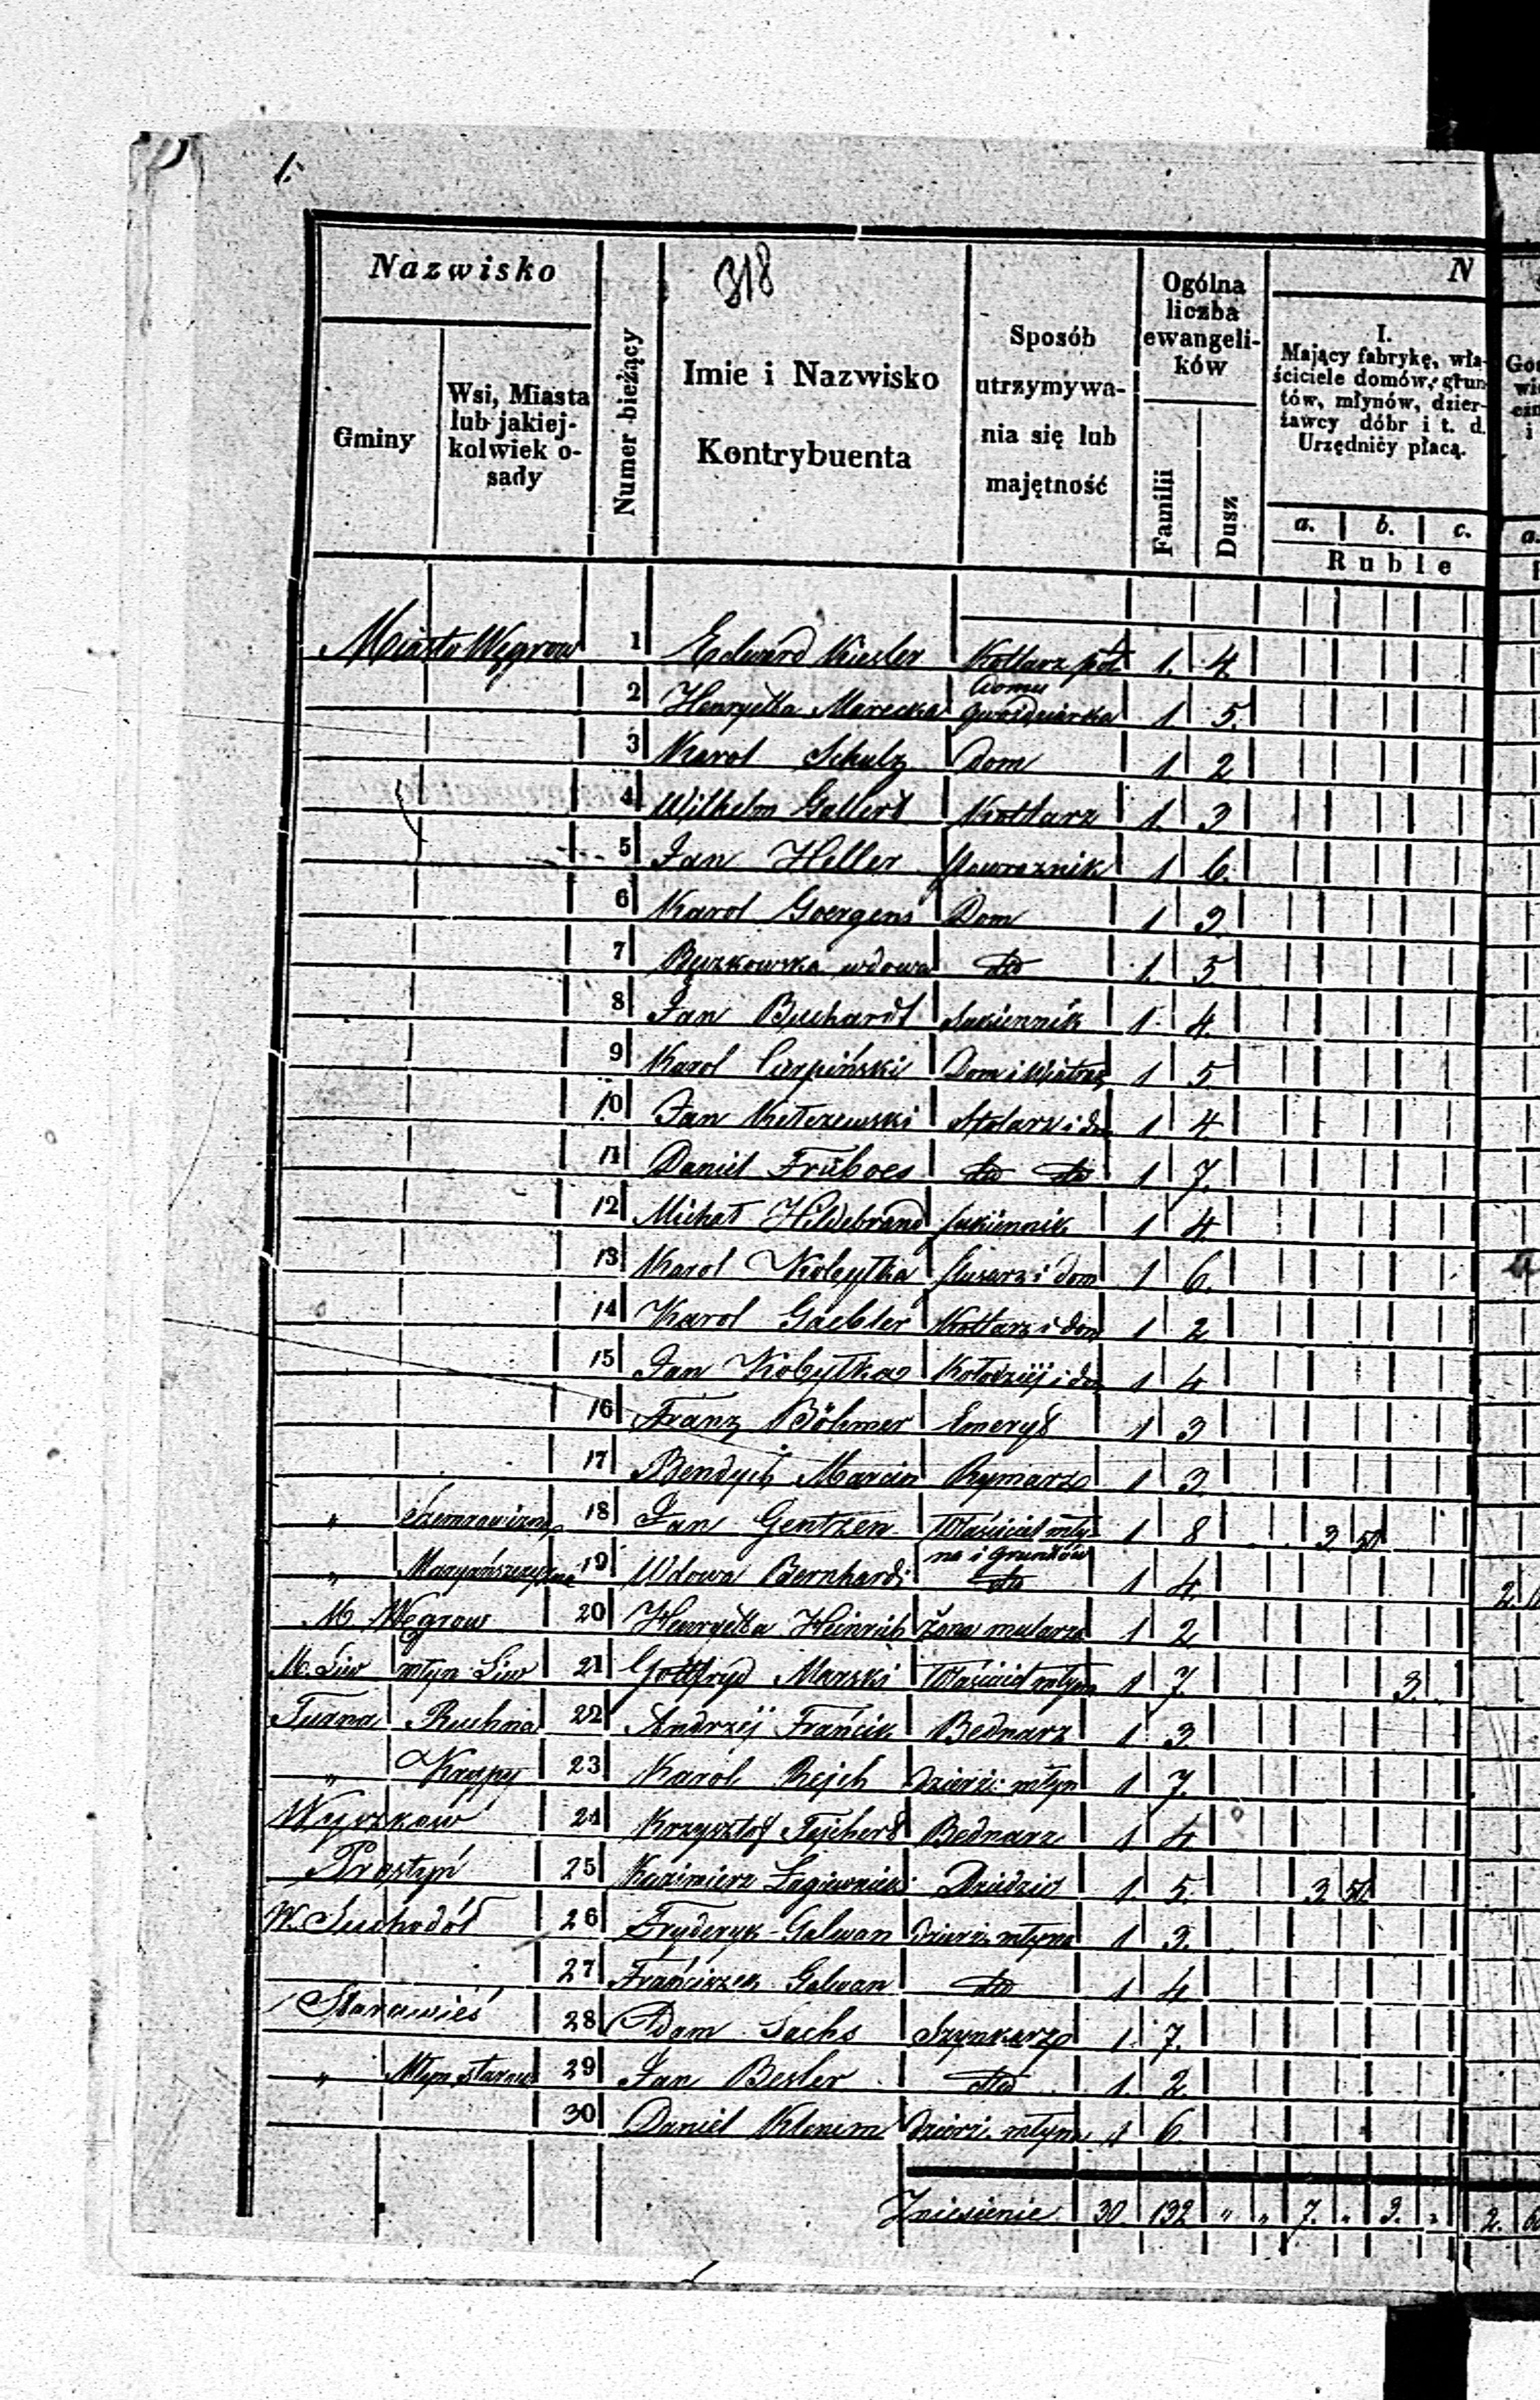 1.
318
Nazwisko
Gminy
Wsi, Miasta lub jakiej-kolwiek o-sady
Numer bieżący
Imie i Nazwisko
Kontrybuenta
Sposób utrzymywa-nia się lub majętność
Ogólna liczba ewangeli-ków
Familii
Dusz
N
I.
Mający fabrykę, wła-
ściciele domów, grun
tów, młynów, dzier-
żawcy dóbr i t. d.
Urzędnicy płacą.
a. b. c.
Ruble
Miasto Węgrow 1 Edward Kiesler Kotlarz pół domu 1. 4
2 Henryetta Marecka Gwoździarka 1 5.
3 Karol Schulz Dom 1 2
4 Wilhelm Gallert Kotlarz 1. 3
5 Jan Heller Powroznik 1 6.
6 Karol Goergens Dom 1 3
7 wdowa dto 1. 5
8 Jan Buchardt Sukiennik 1. 4.
9 Karol Cirpiński Dom i Wiatrak 1 5
10 Jan Stolarz i dom 1 4
11 Daniel Früboes dto dto 1 7.
12 Michał Hildebrand Sukiennik 1 4
13 Karol Kobyłka Slusarz i dom 1 6.
14 Karol Gaebler Kotlarz i dom 1 2
15 Jan Kobyłka Kołodziej i dom 1 4
16 Franz Böhmer Emeryt 1 3
17 Bendych Marcin Rymarz 1 3
" 18 Jan Gentzen Właściciel mły-na i gruntów 1 8 3 50
" 19 Wdowa Bernhardi dto 1 4. 2
M. Węgrow 20 Henryetta Heinrich Żona mularza 1 2
M. Liw młyn Liw 21 Gottfryd Marski Właściciel młyna 1 7. 3.
Ruchna 22 Andrzej Frańcik Bednarz 1 3
" Krypy 23 Karol Rejch Dzierż: młyn 1 7.
Wyszkow 24 Krzysztof Tejchert Bednarz 1 4
Prostyń 25 Kazimierz Dziedzic 1. 5. 3 50.
W. Suchodół 26 Fryderyk Galwan Dzierż. młyna 1 3.
27 Frańciszek Galwan dto 1 4
Starawieś 28 Adam Sachs Szynkarz 1. 7.
" Młyn 29 Jan Besler dto 1. 2
30 Daniel Klenim Dzierż. młyna 1 6.
Zniesienie 30. 132 " " 7. " 3. " 2.